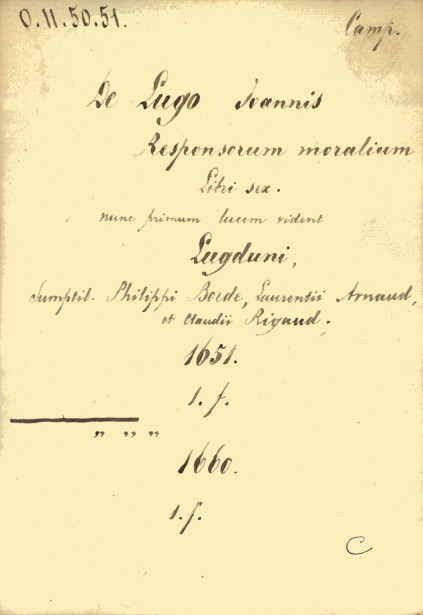 O.II.50.51.
Camp.
De Lugo Joannis
Responsorum moralium
Libri sex.
nunc primum lucem vident
Lugduni,
Sumptib. Philippi Borde, Laurentii Arnaud,
et Claudii Rigaud.
1651.
1. f.
" " "
1660.
1. f.
C